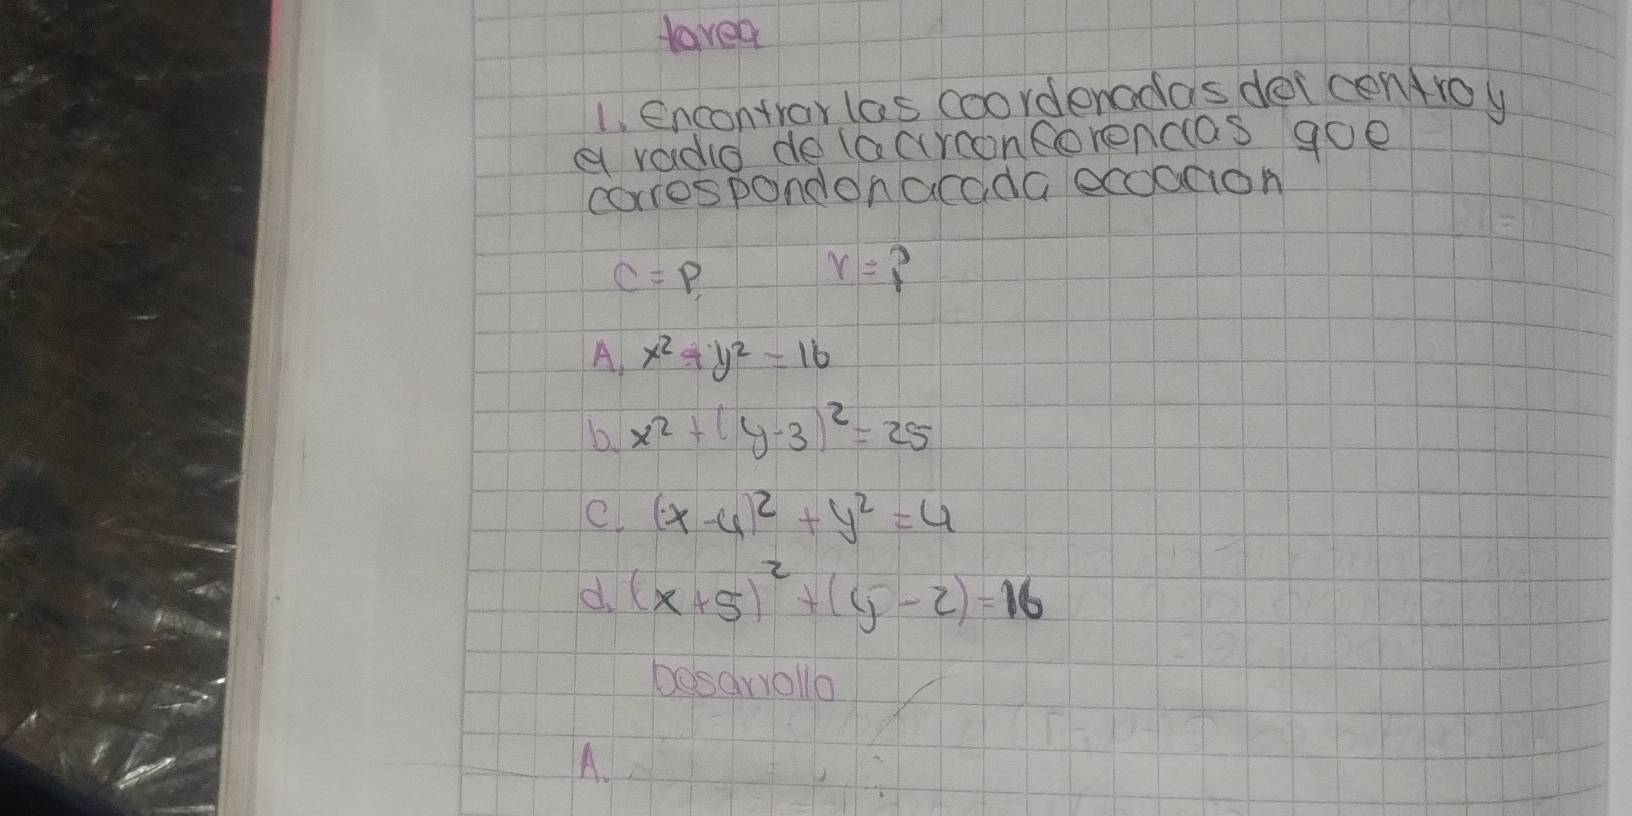 tarea
1. encontrar las coordenadas del centro y
el radio de la circonferencias qoe
correspondon acada ecoacion
C = ? r = ?
A. x² + y² = 16
b. x² + (y-3)² = 25
C. (x-4)² + y² = 4
d. (x+5)² + (y-2) = 16
Desarrollo
A.